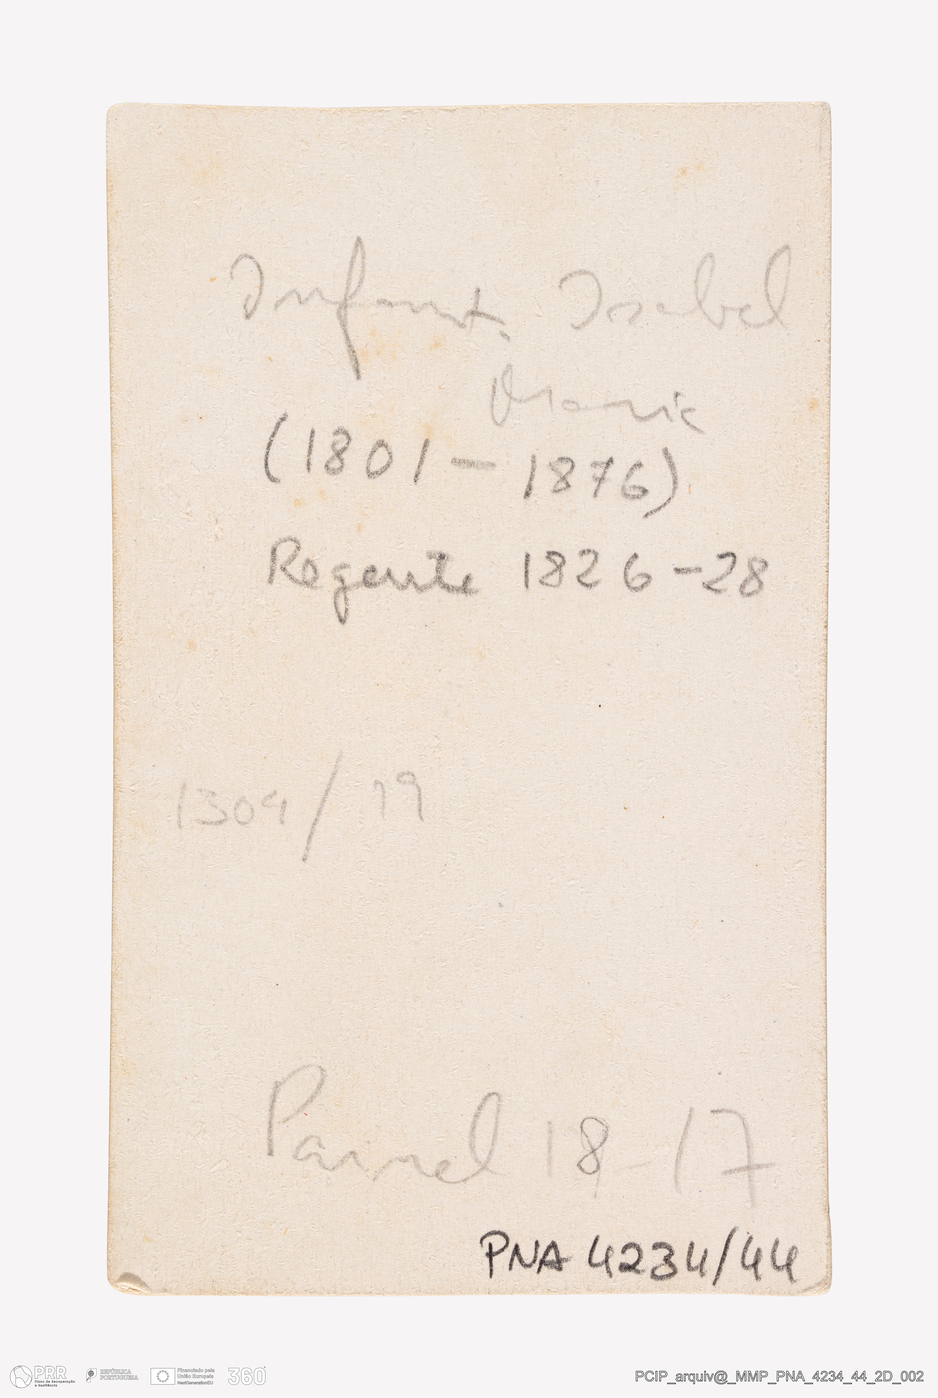 Infant. Isabel
Maria
(1801 – 1876)
Regente 1826 – 28
1304 / 19
Painel 18 - 17
PNA 4234/44
PRR
REPÚBLICA
PORTUGUESA
Financiado pela
União Europeia
NextGenerationEU
360°
PCIP_arquiv@_MMP_PNA_4234_44_2D_002